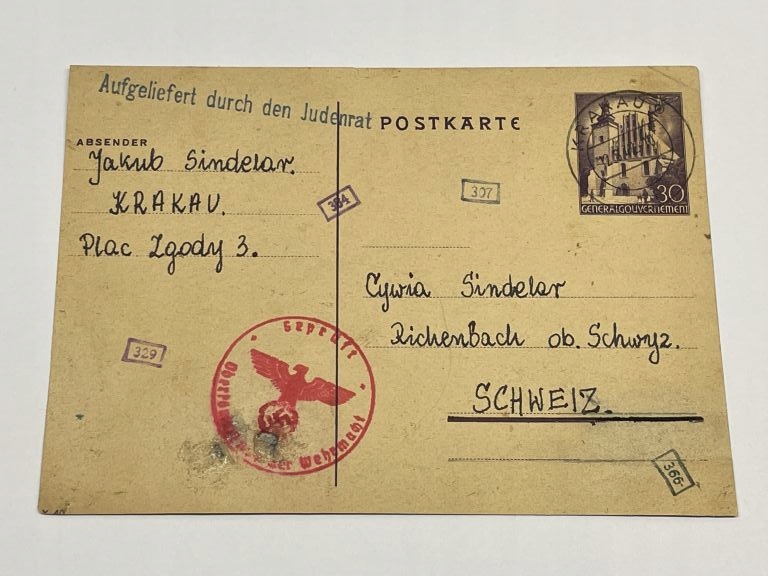 Aufgeliefert durch den Judenrat
POSTKARTE
KRAKAU
30
GENERALGOUVERNEMENT
ABSENDER
Jakub Sindelar.
KRAKAU.
Plac Zgody 3.
384
307
Cywia Sindelar
Richenbach ob. Schwyz.
SCHWEIZ.
329
Geprüft
der Wehrmacht
366